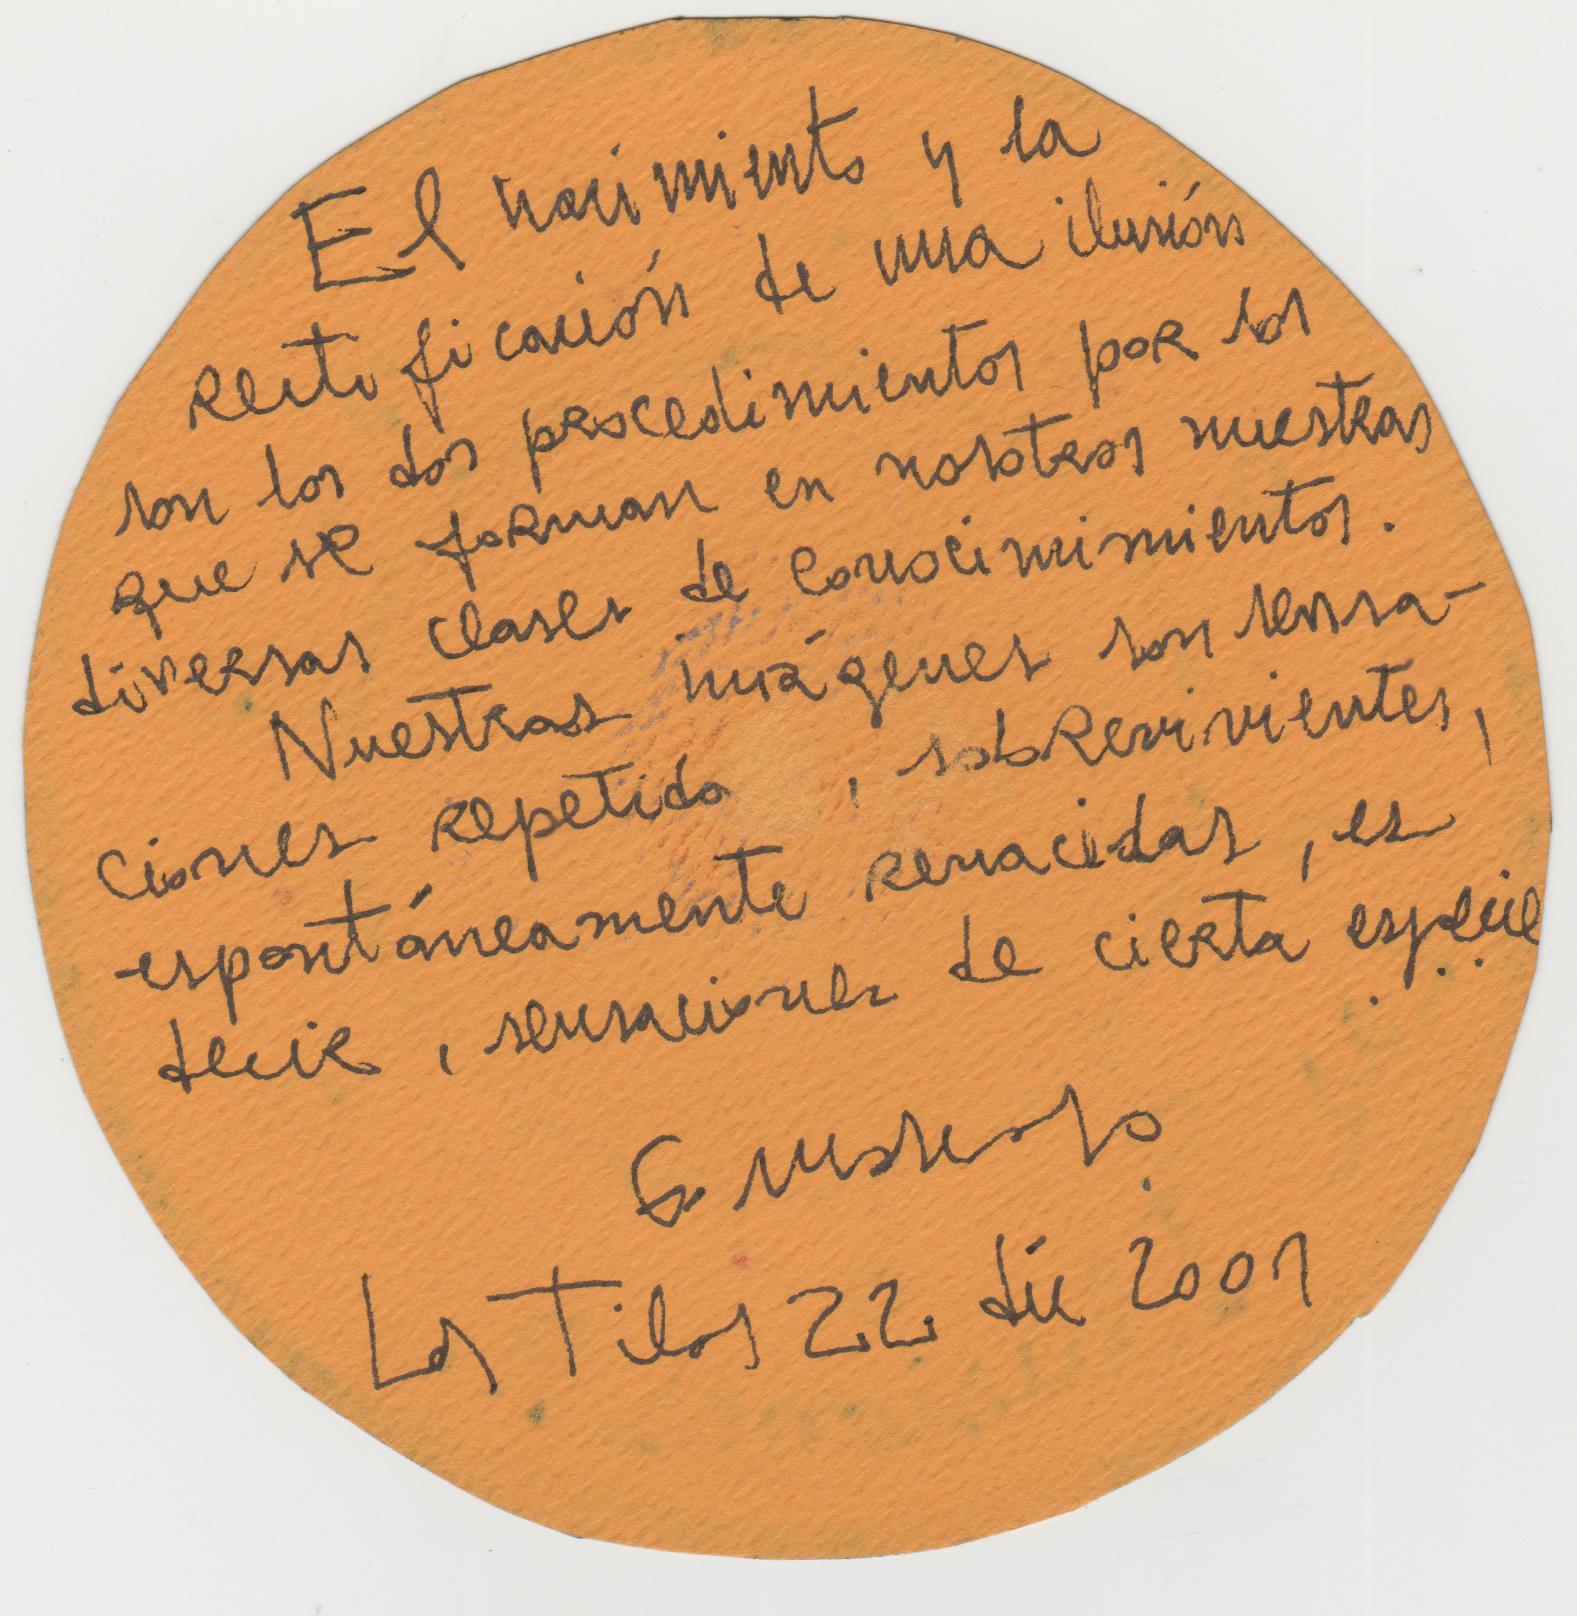 El nacimiento y la
rectificación de una ilusión
son los dos procedimientos por los
que se forman en nosotros nuestras
diversas clases de conocimimientos.
Nuestras imágenes son sensa-
ciones repetida , sobrevivientes,
espontáneamente renacidas, es
decir, sensaciones de cierta especie
Los Tilos 22 dic 2001